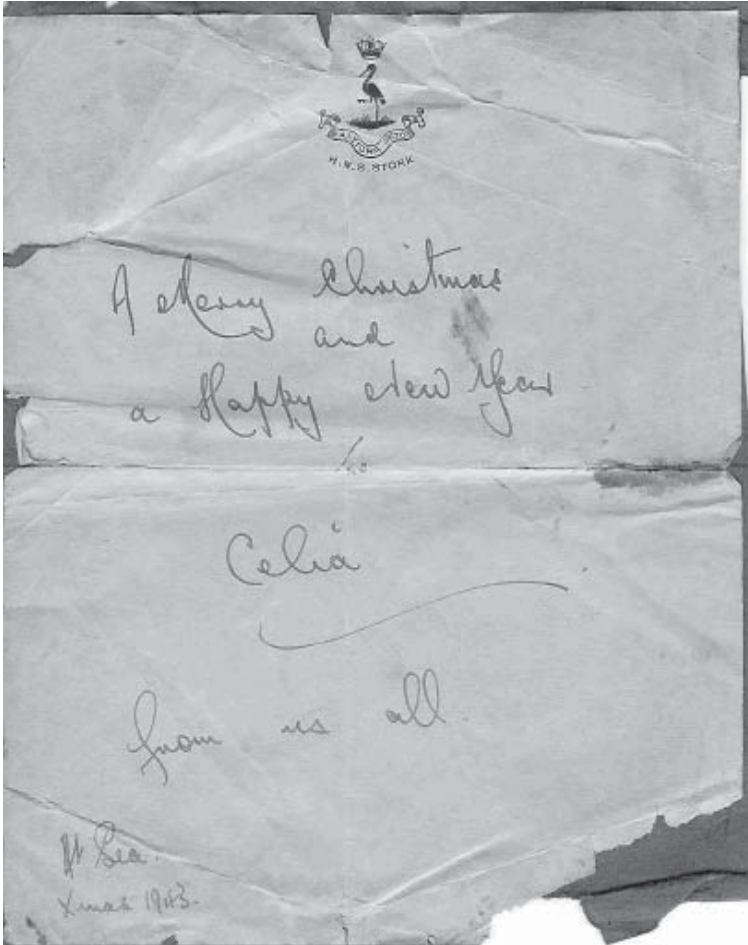 H.M.S. STORK
A Merry Christmas
and
a Happy New Year
to
Celia
from us all.
At Sea.
Xmas 1943.